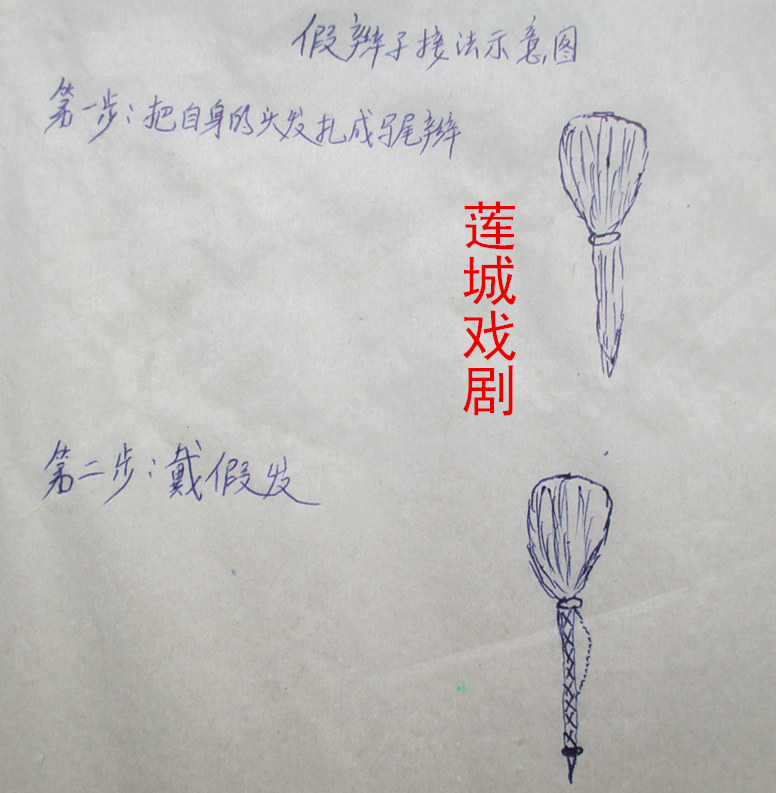 假辫子接法示意图
第一步：把自身的头发扎成马尾辫
莲城戏剧
第二步：戴假发